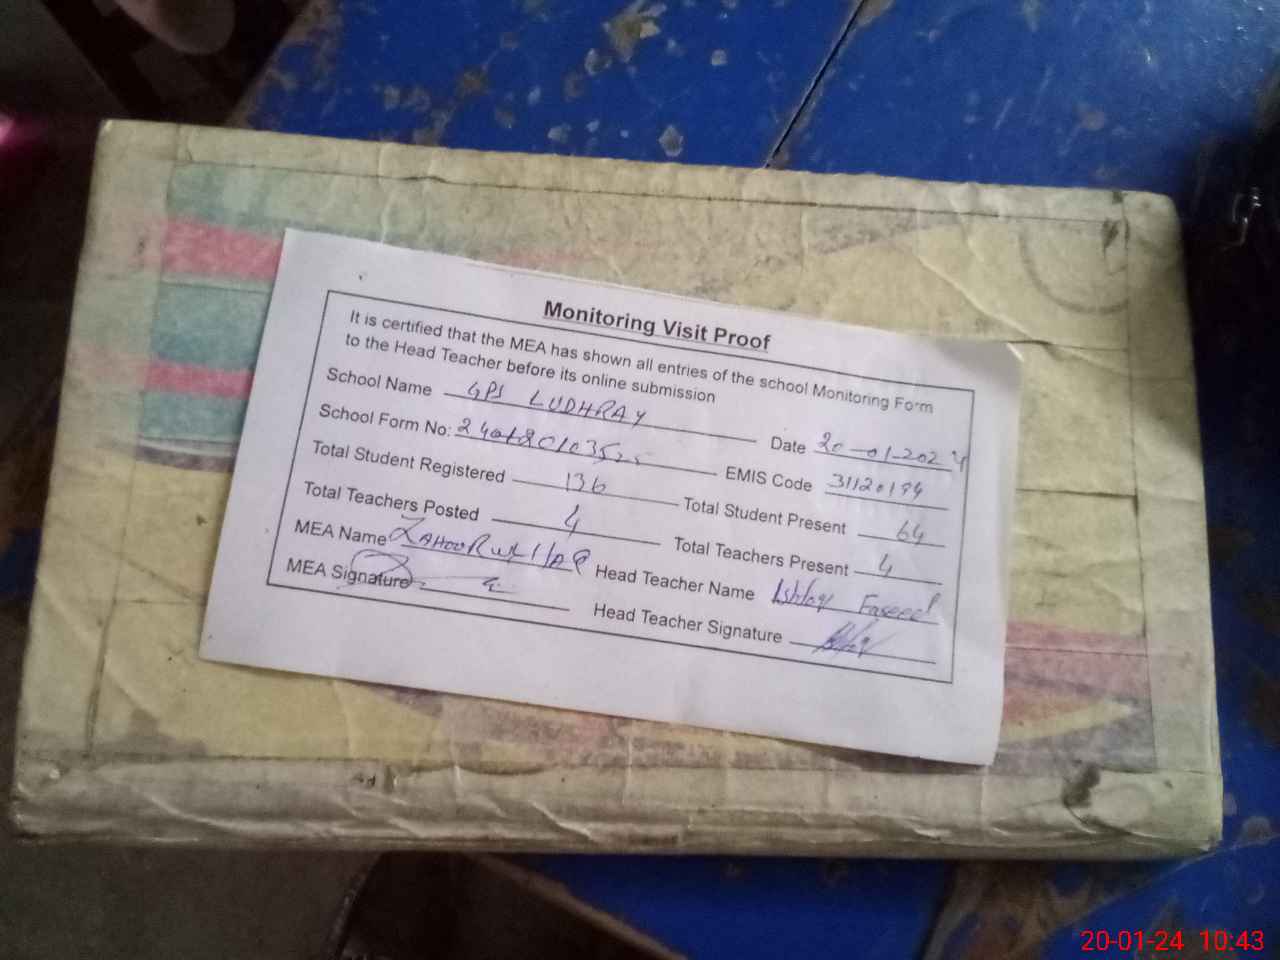 Monitoring Visit Proof
It is certified that the MEA has shown all entries of the school Monitoring Form
to the Head Teacher before its online submission
School Name GPS LUDHRAY Date 20-01-2024
School Form No: EMIS Code 31120194
Total Student Registered 136 Total Student Present 64
Total Teachers Posted 4 Total Teachers Present 4
MEA Name ZAHOOR ul HAQ Head Teacher Name
MEA Signature Head Teacher Signature
20-01-24 10:43